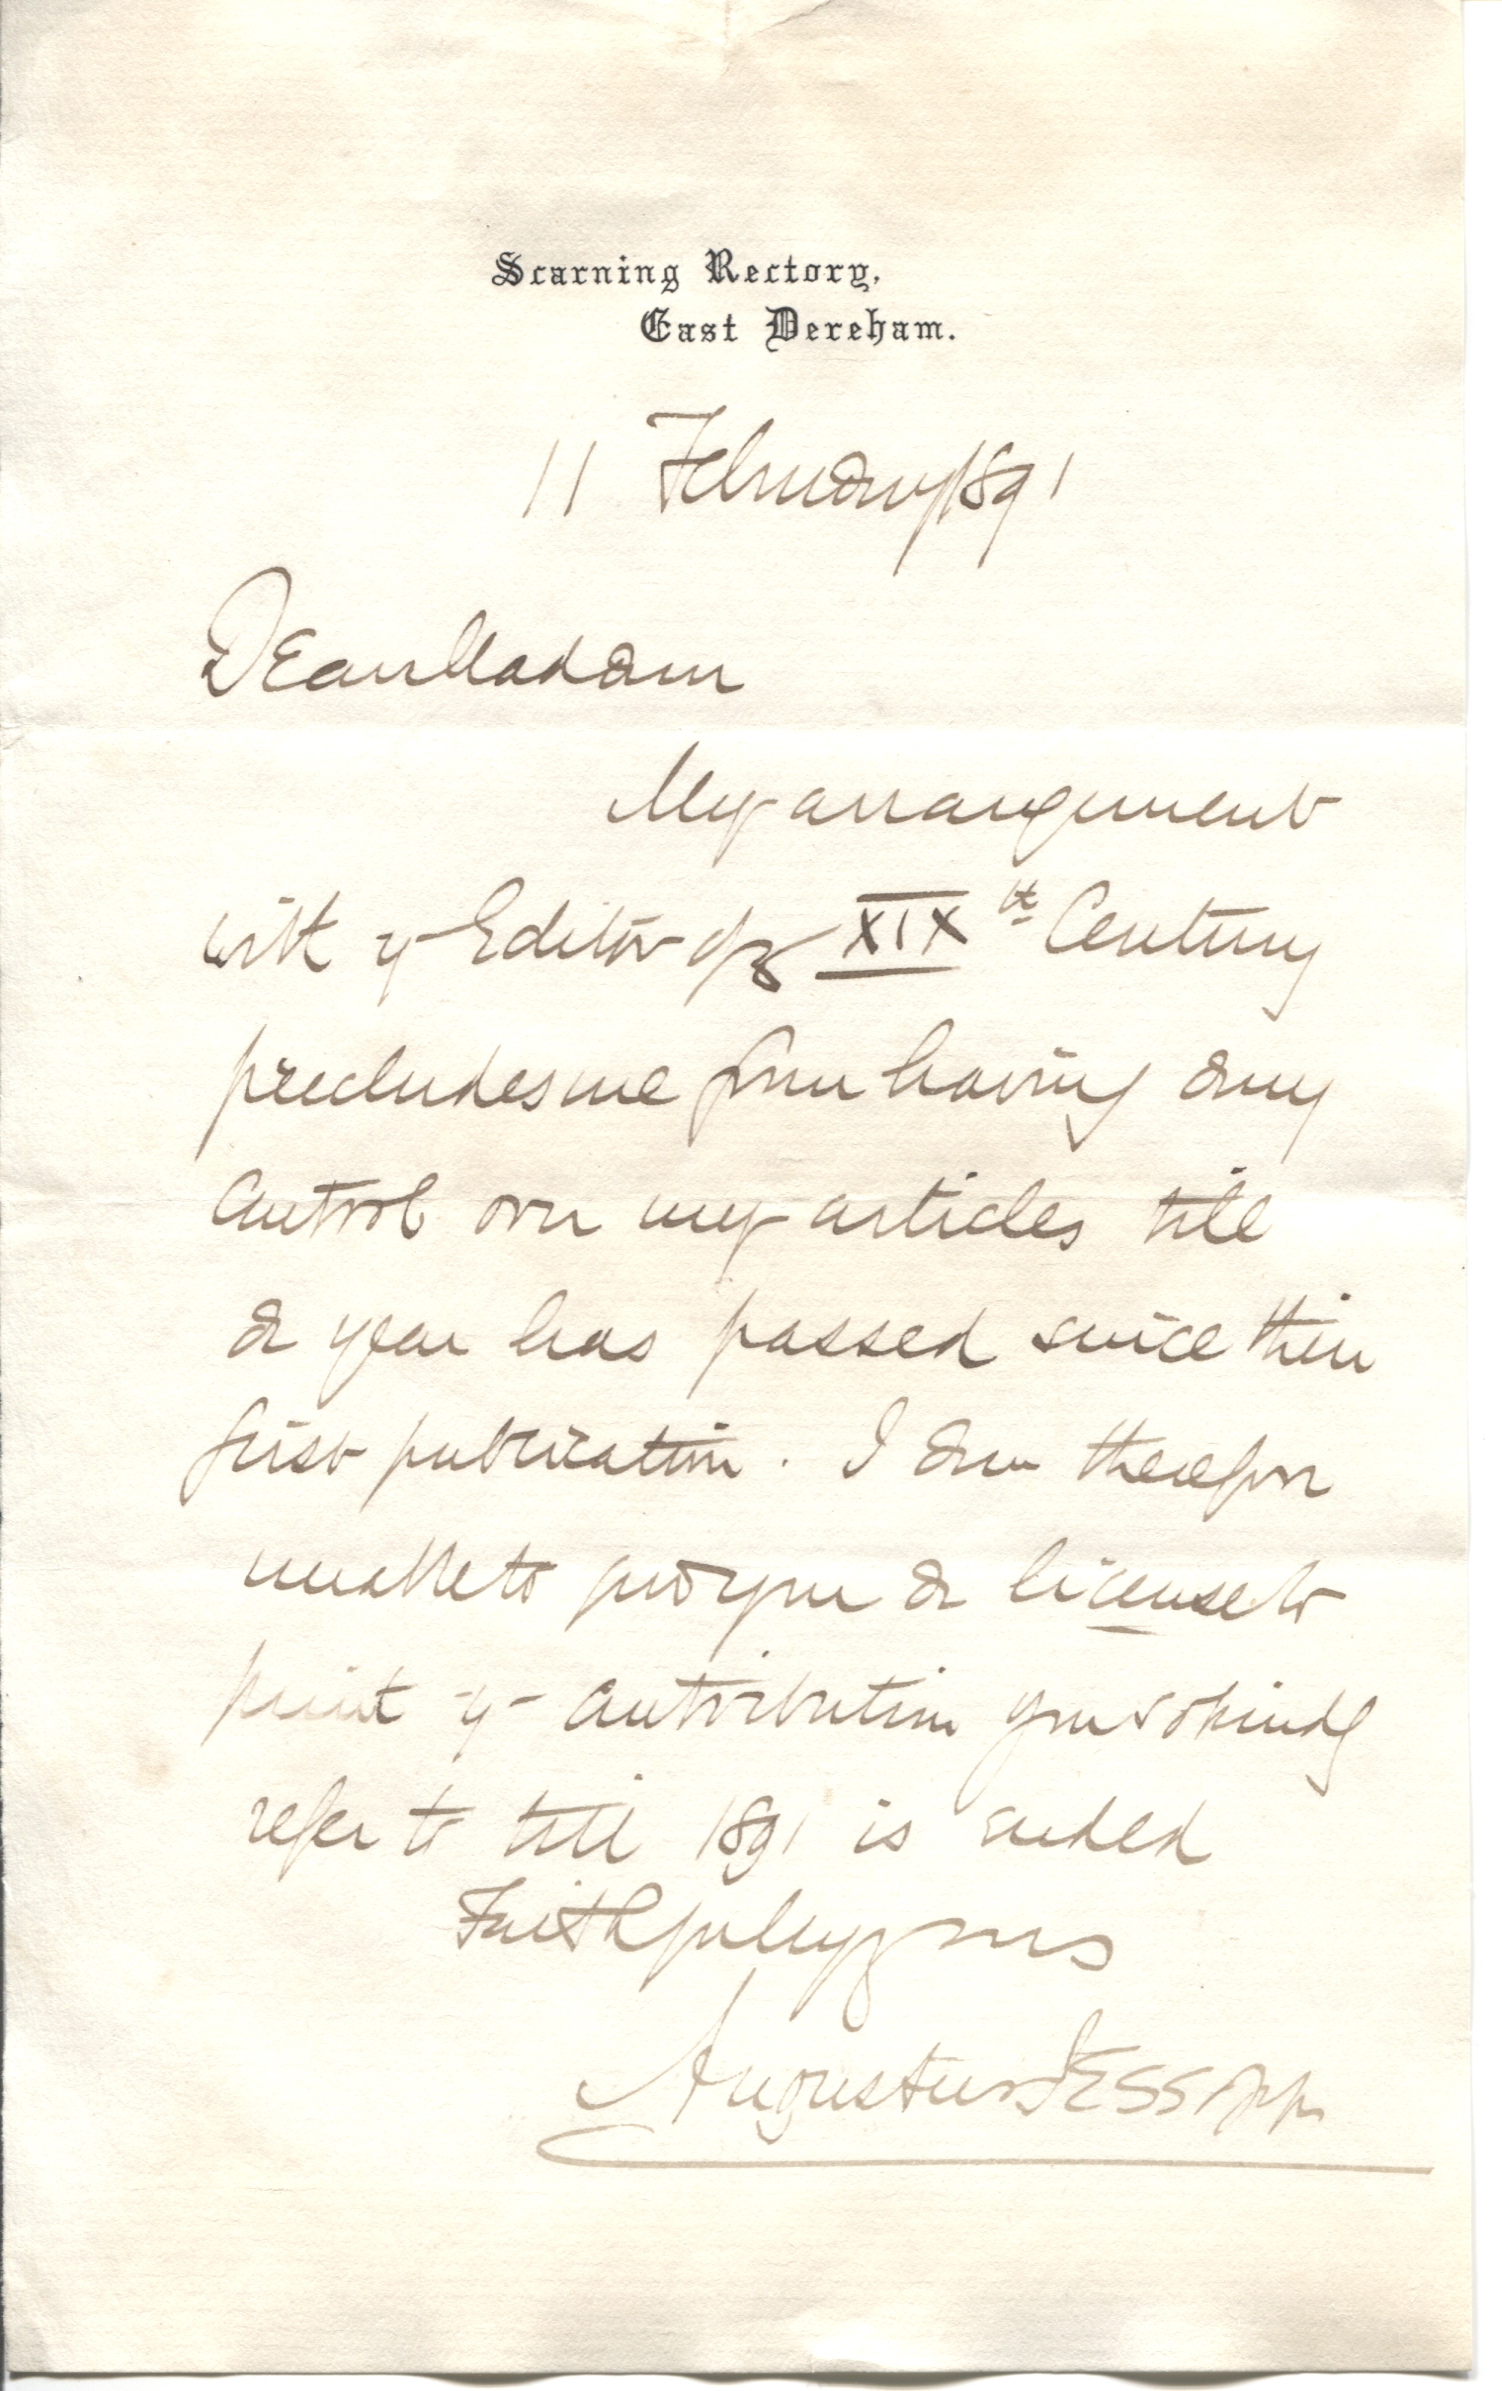 Scarning Rectory,
East Dereham.
11 February 1891
Dear Madam
My arrangement
with y Editor of y XIXth Century
precludes me from having any
control over my articles till
a year has passed since their
first publication. I am therefore
unable to give you a license to
print y contribution you so kindly
refer to till 1891 is ended
Faithfully yours
Augustus Jessopp